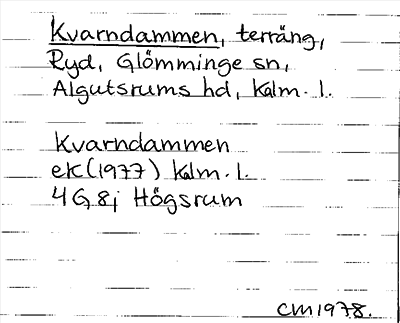 Kvarndammen, terräng,
Ryd, Glömminge sn,
Algutsrums hd, Kalm. l.
Kvarndammen
ek (1977) Kalm. l.
4 G 8j Högsrum
CM 1978.